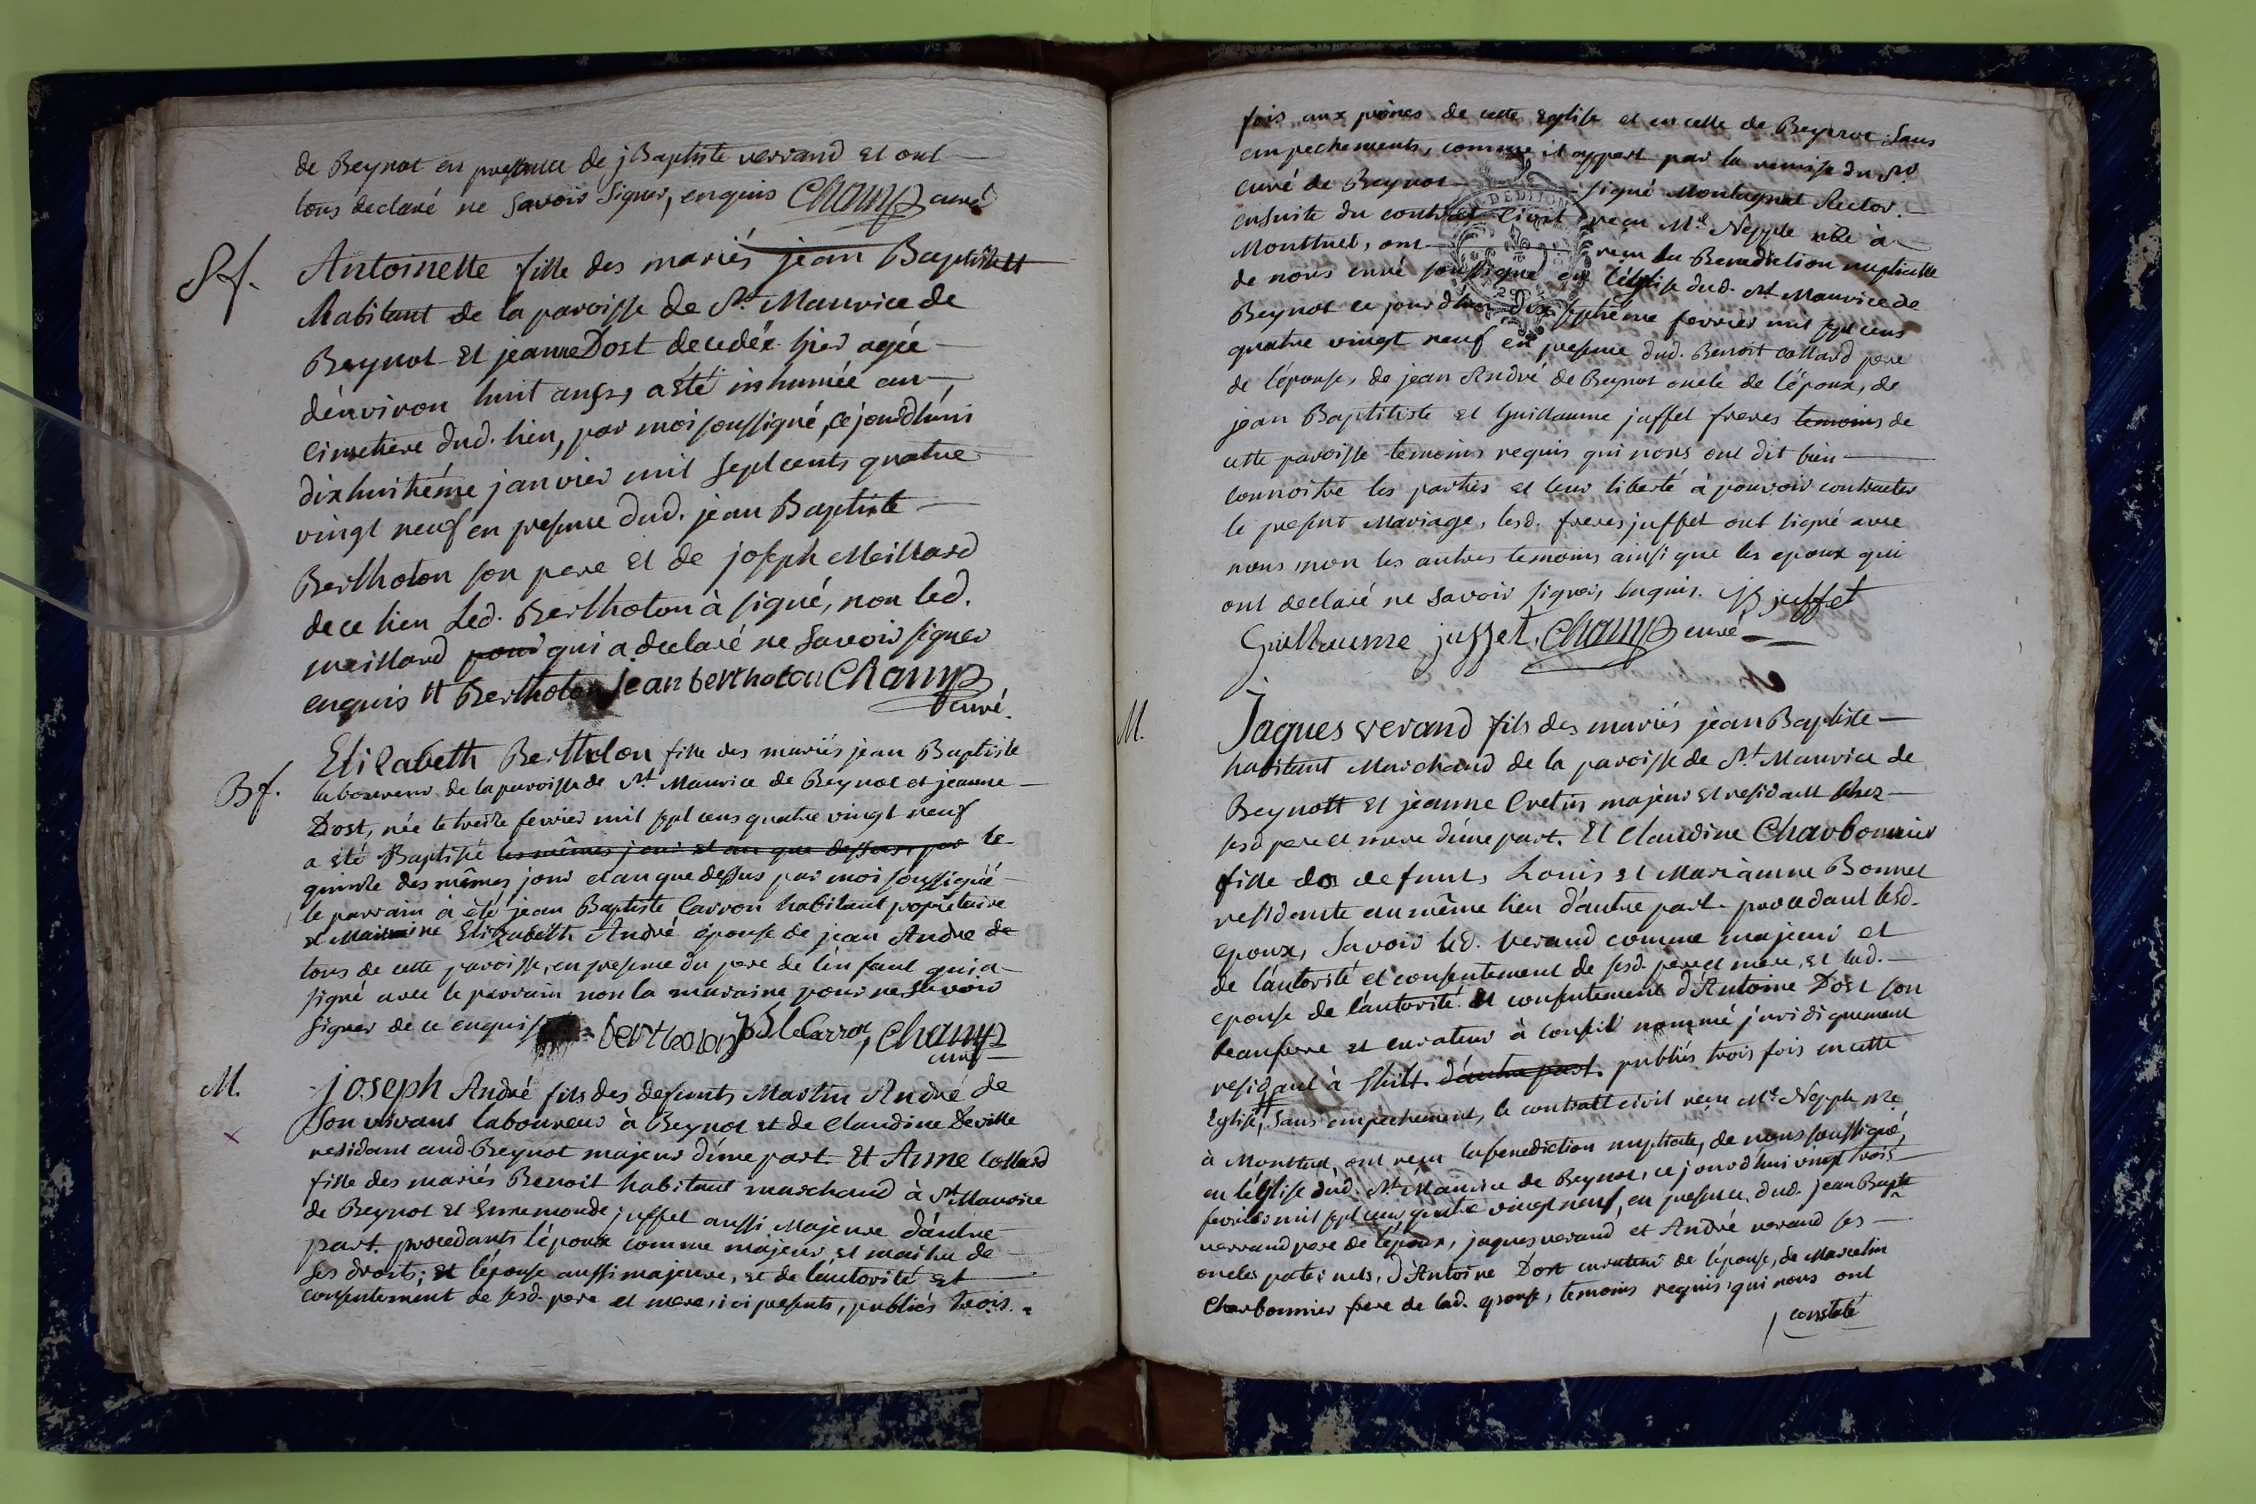 de Beynot en presence de jBaptiste verrand et ont
tous declaré ne savoir signer, enquis Champ curé
Sf.
Antoinette fille des mariés jean Baptiste tt
habitant de la paroisse de St. Maurice de
Beynot et jeanne Dost decedée hier agée
dénviron huit ans, a été inhumée au
cimetiere dud. lieu, par moi soussigné, ce jourdhui
dixhuitiéme janvier mil sept cents quatre
vingt neuf en presence dud. jean Baptiste
Bertholon son pere et de joseph Meillard
de ce lieu Led. Bertholon à signé, non led.
meillard pour qui a declaré ne savoir signer
enquis tt Bertholon jean bertholon Champ
curé.
Bf.
Elizabeth Bertholon fille des mariés jean Baptiste
laboureur de la paroisse de St. Maurice de Beynot et jeanne
Dost, née le treize fevrier mil sept cens quatre vingt neuf
a été Baptisée les mêmes jour et an que dessus par le
quinze des mêmes jour et an que dessus par moi soussigné
le parrain à été jean Baptiste Carron habitant propriétaire
et Maraine Elizabeth André épouse de jean André de
tous de cette paroisse, en presence du pere de l'enfant qui a
signé avec le parrain non la maraine pour ne savoir
signer de ce enquis bertholon jB Carron, Champ
curé
M.
joseph André fils des defunts Martin André de
son vivant laboureur à Beynot et de Claudine Deville
residant aud Beynot majeur d'une part. Et Anne Collard
fille des mariés Benoit habitant marchand à St Maurice
de Beynot et Ennemonde juffet aussi Majeure d'autre
part. procedants l'époux comme majeur et maitre de
ses droits; et l'épouse aussi majeure, et de l'autorité et
consentement de sesd. pere et mere, ici presents, publiés trois
fois aux prônes de cette Eglise et en celle de Beynot sans
empechements, comme il appert par la remise du Sr.
curé de Beynot signé Montagnat Rector.
ensuite du contrat civil reçu Me. Nepple nre à
Montluel, ont reçu la Benediction nuptialle
de nous curé soussigné en l'église dud. St Maurice de
Beynot ce jourdhui dix septième fevrier mil sept cens
quatre vingt neuf en presence dud. Benoit Collard pere
de l'épouse, de jean André de Beynot oncle de l'époux, de
jean Baptitiste et Guillaume juffet freres temoins de
cette paroisse temoins requis qui nous ont dit bien
connoitre les parties et leur liberté à pouvoir contracter
le present Mariage, lesd. freres juffet ont signé avec
nous non les autres temoins ainsi que les epoux qui
ont declaré ne savoir signer, enquis. JB juffet
Guillaume juffet, Champ curé
M.
Jaques verand fils des mariés jean Baptiste
habitant Marchand de la paroisse de St. Maurice de
Beynott et jeanne Cretin majeur et residant chez
sesd pere et mere d'une part. Et Claudine Charbonnier
fille des defunts Louis et Marianne Bonnet
residante au même lieu d'autre part. procedant lesd.
epoux, savoir led. verand comme majeur et
de l'autorité et consentement de sesd. pere et mere, et lad.
epouse de l'autorité et consentement d'Antoine Dost son
beaufrere et curateur à conseil nommé juridiquement
residant à d'autre part. publiés trois fois en cette
Eglise, sans empechement, le contratt civil reçu Me. Nepple nre
à Montluel, ont reçu la benediction nuptiale, de nous soussigné,
en l'église dud. St. Maurice de Beynot, ce jourdhui vingt trois
fevrier mil sept cens quatre vingt neuf, en presence dud. jean Bapte
verrand pere de l'époux, jaques verand et André verand ses
oncles paternels, d'Antoine Dost curateur de l'épouse, de Marcelin
Charbonnier frere de lad. epouse, temoins requis qui nous ont
constaté